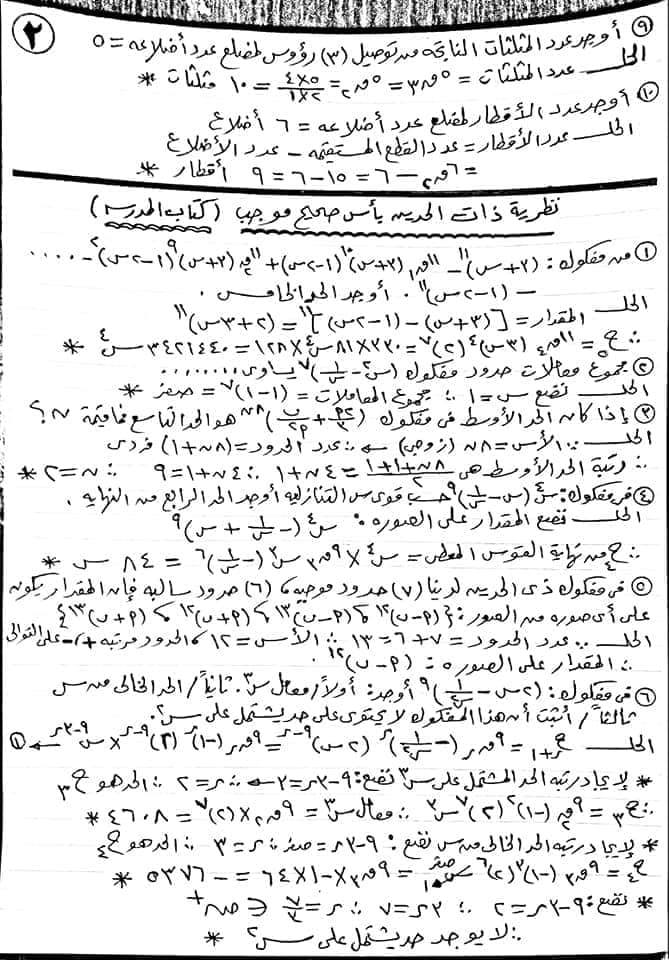 ٢
٩) أوجد عدد المثلثات الناتجة من توصيل (٣) رؤوس لمضلع عدد أضلاعه = ٥
الحل عدد المثلثات = ٥ق٣ = ٥ق٢ = ٤×٥ / ١×٢ = ١٠ مثلثات *
١٠) أوجد عدد الأقطار لمضلع عدد أضلاعه = ٦ أضلاع
الحل عدد الأقطار = عدد القطع المستقيمة - عدد الأضلاع
= ٦ق٢ - ٦ = ١٥ - ٦ = ٩ أقطار *
نظرية ذات الحدين بأس صحيح موجب (كتاب المدرسة)
١) من مفكوك: (٣+س)^١١ - ١١ق١ (٣+س)^١٠ (١-٢س) + ١١ق٢ (٣+س)^٩ (١-٢س)^٢ - ....
- (١-٢س)^١١ . أوجد الحد الخامس .
الحل المقدار = [(٣+س) - (١-٢س)]^١١ = (٢+٣س)^١١
∴ ح٥ = ١١ق٤ (٣س)^٤ (٢)^٧ = ٣٣٠×٨١س^٤×١٢٨ = ٣٤٢١٤٤٠ س^٤ *
٢) مجموع معاملات حدود مفكوك (س^٢ - ١/س)^٧ يساوى ........
الحل نضع س = ١ ∴ مجموع المعاملات = (١-١)^٧ = صفر *
٣) إذا كان الحد الأوسط فى مفكوك (٢ب/٣ + ب/٢٢)^٨ن هو الحد التاسع فما قيمة ن ؟
الحل ∵ الأس = ٨ن (زوجى) ← ∴ عدد الحدود = (٨ن+١) فردى
∴ رتبة الحد الأوسط هى ٨ن+١+١ / ٢ = ٤ن+١ ∴ ٤ن+١ = ٩ ∴ ن = ٢ *
٤) فى مفكوك: س^٤ (س - ١/س)^٩ حسب قوى س التنازلية أوجد الحد الرابع من النهاية .
الحل نضع المقدار على الصورة: س^٤ (- ١/س + س)^٩
∴ ح٤ من نهاية القوس المعطى = س^٤ × ٩ق٣ س^٣ (- ١/س)^٦ = ٨٤ س *
٥) فى مفكوك ذى الحدين لدينا (٧) حدود موجبة، (٦) حدود سالبة فإن المقدار يكون
على أى صورة من الصور: {(م-ن)^١٢ ، (م-ن)^١٣ ، (م+ن)^١٢ ، (م+ن)^١٣}
الحل ∵ عدد الحدود = ٧+٦ = ١٣ ∴ الأس = ١٢ ، الحدود مرتبة +/- على التوالى
∴ المقدار على الصورة: (م-ن)^١٢ .
٦) فى مفكوك: (٢س - ١/س^٢)^٩ أوجد: أولاً/ معامل س^٣. ثانياً/ الحد الخالى من س
ثالثاً/ أثبت أن هذا المفكوك لا يحتوى على حد يشتمل على س^٢.
الحل ح ر+١ = ٩ق ر (- ١/س^٢)^ر (٢س)^٩-ر = ٩ق ر (-١)^ر (٢)^٩-ر × س^٩-٣ر ← ١
* لإيجاد رتبة الحد المشتمل على س^٣ نضع: ٩-٣ر = ٣ ← ∴ ر = ٢ ∴ الحد هو ح٣
∴ ح٣ = ٩ق٢ (-١)^٢ (٢)^٧ س^٣ ∴ معامل س^٣ = ٩ق٢ × (٢)^٧ = ٤٦٠٨ *
* لإيجاد رتبة الحد الخالى من س نضع: ٩-٣ر = صفر ∴ ر = ٣ ∴ الحد هو ح٤
ح٤ = ٩ق٣ (-١)^٣ (٢)^٦ س^صفر = ٩ق٣ × -١ × ٦٤ = - ٥٣٧٦ *
* نضع: ٩-٣ر = ٢ ∴ ٣ر = ٧ ∴ ر = ٧/٣ ∉ ص+
∴ لا يوجد حد يشتمل على س^٢ *